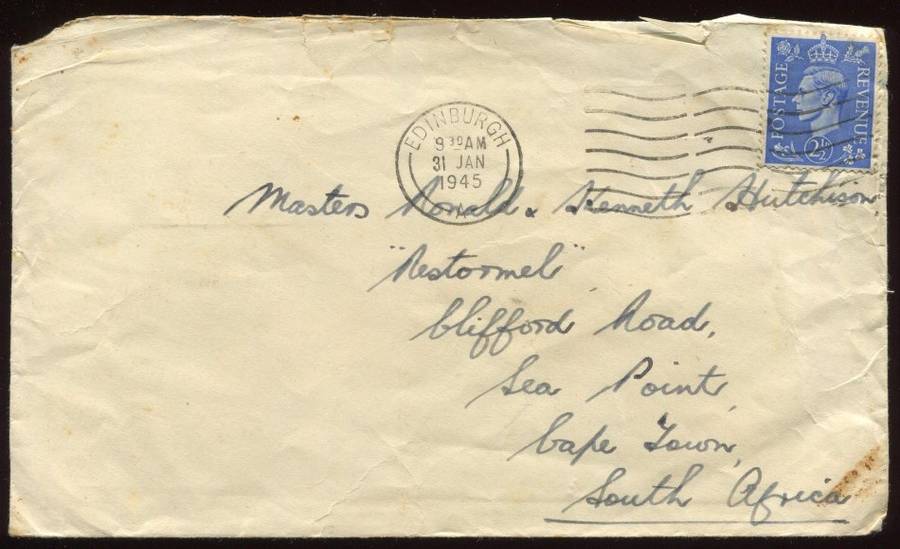 POSTAGE REVENUE
2½D
EDINBURGH
9 30 AM
31 JAN
1945
Masters Ronald & Kenneth Hutchison
"Restormel"
Clifford Road,
Sea Point,
Cape Town,
South Africa